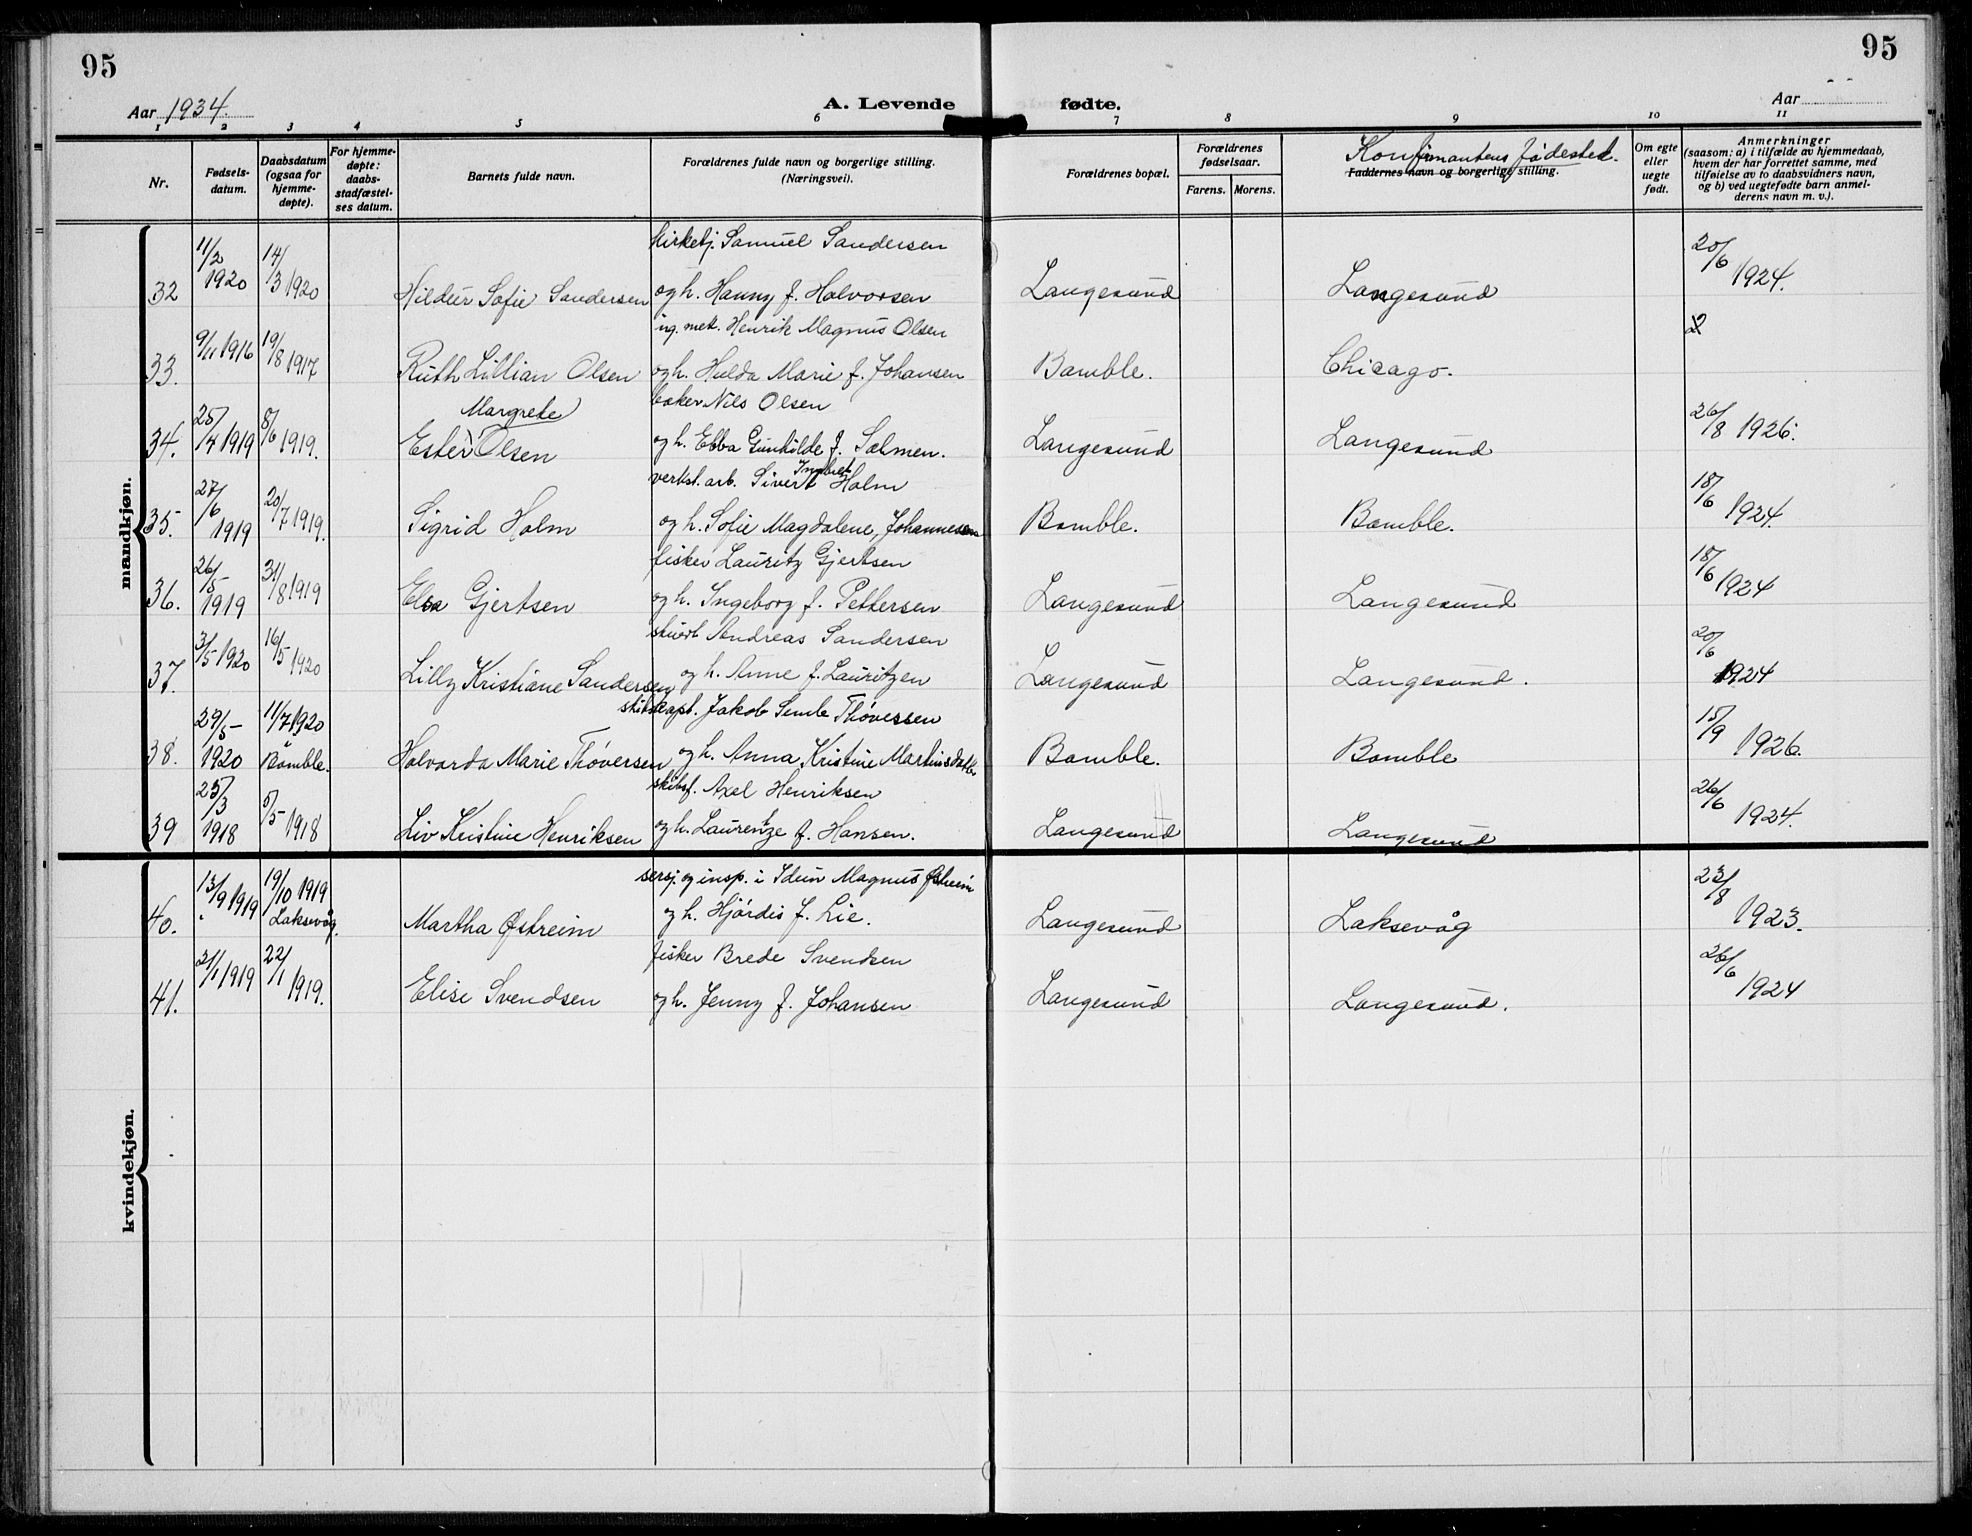 95
95
Aar 1934.
A. Levende fødte.
Aar
1 2 3 4 5 6 7 8 9 10 11
Nr.
Fødsels-
datum.
Daabsdatum
(ogsaa for
hjemme-
døpte).
For hjemme-
døpte:
daabs-
stadfæstel-
ses datum.
Barnets fulde navn.
Forældrenes fulde navn og borgerlige stilling.
(Næringsvei).
Forældrenes bopæl.
Forældrenes
fødselsaar.
Farens. Morens.
Konfirmantens fødested.
Faddernes navn og borgerlige stilling.
Om egte
eller
uegte
født.
Anmerkninger
(saasom: a) i tilfælde av hjemmedaab,
hvem der har forrettet samme, med
tilføielse av to daabsvidners navn,
og b) ved uegtefødte barn anmel-
derens navn m. v.).
mandkjøn.
kirketj. Samuel Sandersen
32 11/2 1920 14/3 1920 Hildur Sofie Sandersen og h. Hanny f. Halvorsen Langesund Langesund 20/6 1924.
Henrik Magnus Olsen
33. 9/11 1916 19/8 1917 Ruth Lillian Olsen og h. Hulda Marie f. Johansen Bamble. Chicago.
Margrete baker Nils Olsen
34. 25/4 1919 8/6 1919. Ester Olsen og h. Ebba Gunhilde f. Salmen. Langesund Langesund 26/8 1926.
verkst. arb. Sivert Ingbret Holm
35. 27/6 1919 20/7 1919. Sigrid Holm og h. Sofie Magdalene, Johannesen Bamble. Bamble. 18/6 1924.
fisker Lauritz Gjertsen
36. 26/5 1919 31/8 1919 Elsa Gjertsen og h. Ingeborg f. Pettersen Langesund Langesund 18/6 1924
stuert Andreas Sandersen
37. 3/5 1920 16/5 1920 Lilly Kristiane Sandersen og h. Anne f. Lauritzen Langesund Langesund. 20/6 1924
skibskapt. Jakob Thóvessen
38. 29/5 1920 11/7 1920 Bamble. Halvarda Marie Thóversen og h. Anna Kristine Martinsdatter Bamble. Bamble 15/9 1926.
skibsf. Axel Henriksen
39 25/3 1918 5/5 1918 Liv Kristine Henriksen og h. Laurentze f. Hansen. Langesund Langesund 26/6 1924.
kvindekjøn.
sersj. og insp. i Idun Magnus Østreim
40. 13/9 1919 19/10 1919 Laksevåg. Martha Østreim og h. Hjördis f. Lie. Langesund Laksevåg 23/8 1923.
fisker Brede Svendsen
41. 1919 22/1 1919. Elise Svendsen og h. Jenny f. Johansen Langesund Langesund. 26/6 1924